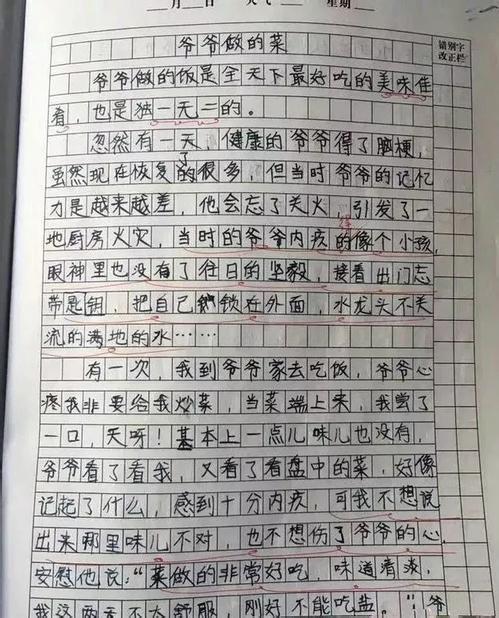 月 日 天气 星期
爷爷做的菜
错别字
改正栏
爷爷做的饭是全天下最好吃的美味佳
肴，也是独一无二的。
忽然有一天，健康的爷爷得了脑梗，
虽然现在恢复了的很多，但当时爷爷的记忆
力是越来越差，他会忘了关火，引发了一
地厨房火灾，当时的爷爷内疚的得像个小孩，
眼神里也没有了往日的坚毅，接着出门忘
带匙钥，把自己锁在外面，水龙头不关
流的满地的水……
有一次，我到爷爷家去吃饭，爷爷心
疼我非要给我炒菜，当菜端上来，我尝了
一口，天呀！基本上一点儿味儿也没有，
爷爷看了看我，又看了看盘中的菜，好像
记起了什么，感到十分内疚，可我不想说
出来哪里味儿不对，也不想伤了爷爷的心，
安慰他说：“菜做的非常好吃，味道清淡，
我这两天不太舒服，刚好不能吃盐。”爷